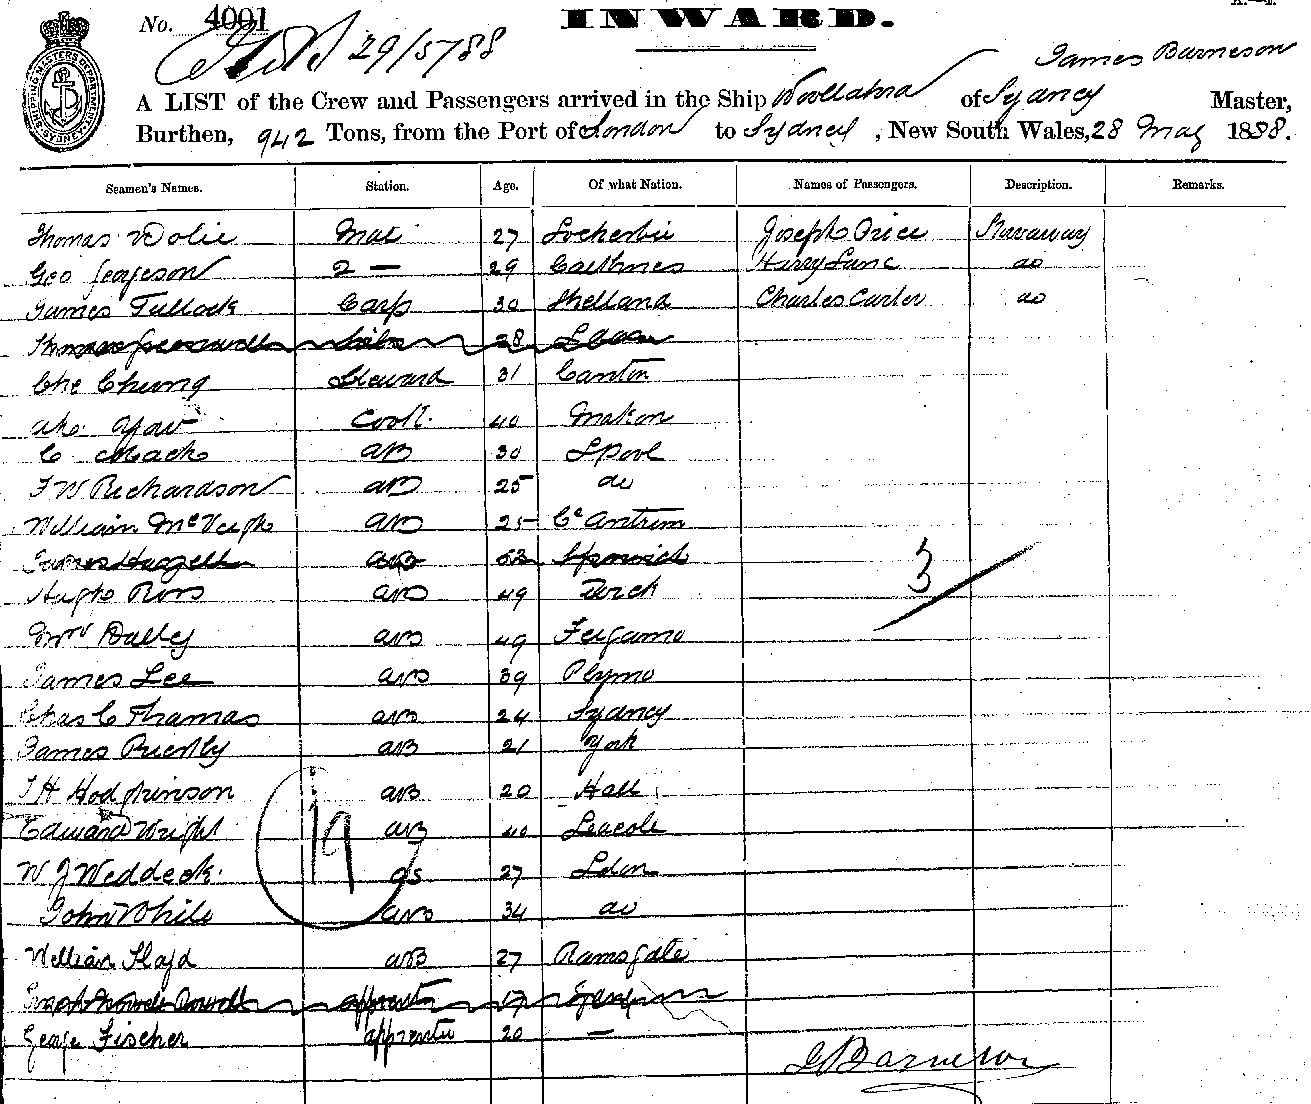 No. 4001
INWARD.
29/5/88
James Barneson
A LIST of the Crew and Passengers arrived in the Ship Woollahra of Sydney Master,
Burthen, 942 Tons, from the Port of London to Sydney, New South Wales, 28 May 1888.
Seamen's Names. Station. Age. Of what Nation. Names of Passengers. Description. Remarks.
Thomas Mate 27 Lockerbie Joseph Price Stowaway
Geo 2 — 29 Caithness Harry Lane do
James Tullock Carp 30 Shetland Charles Carter do
28
Che Chung Steward 31 Canton
Aho Yow Cook 40
C Mack AB 30 Lpool
F W Richardson AB 25 do
William McVeigh AB 25 Co Antrim
James AB Ipswich
Hugh Ross AB 49
Wm Dalley AB 49
James Lee AB 39 Plymo
Chas C Thomas AB 24 Sydney
James Priestly AB 21 York
T H Hodgkinson AB 20 Hull
Edward Wright AB 40
W J Weddeck OS 27 Ldon
John White AB 34 do
William Floyd AB 27 Ramsgate
Joseph apprentice 17
George Fischer apprentice 20 —
3
19
J Barneson